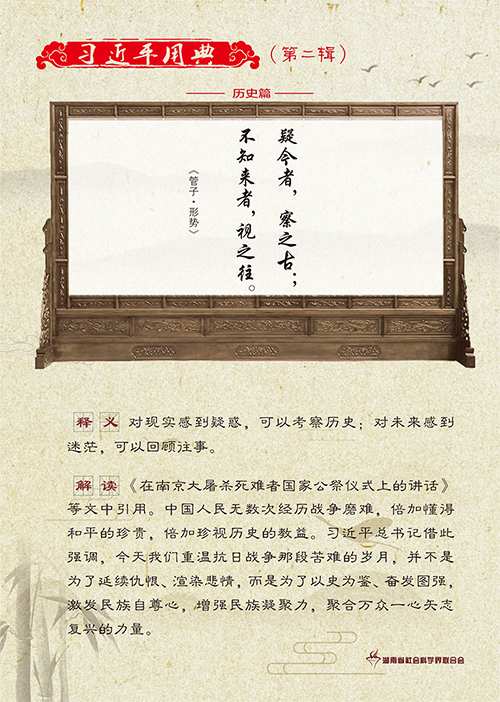 习近平用典
（第二辑）
历史篇
疑今者，察之古；
不知来者，视之往。
《管子·形势》
释义 对现实感到疑惑，可以考察历史；对未来感到
迷茫，可以回顾往事。
解读 《在南京大屠杀死难者国家公祭仪式上的讲话》
等文中引用。中国人民无数次经历战争磨难，倍加懂得
和平的珍贵，倍加珍视历史的教益。习近平总书记借此
强调，今天我们重温抗日战争那段苦难的岁月，并不是
为了延续仇恨、渲染悲情，而是为了以史为鉴、奋发图强，
激发民族自尊心，增强民族凝聚力，聚合万众一心矢志
复兴的力量。
湖南省社会科学界联合会